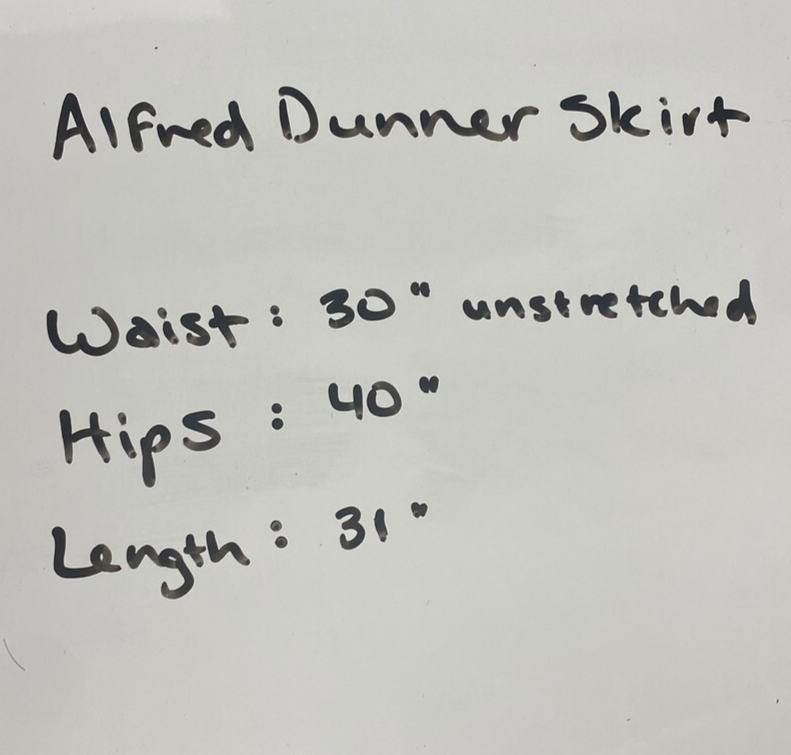 Alfred Dunner Skirt
Waist: 30" unstretched
Hips: 40"
Length: 31"